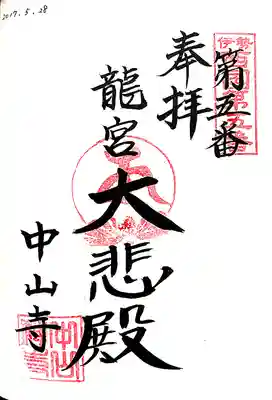 2017.5.28
第五番
奉拝
龍宮
大悲殿
中山寺